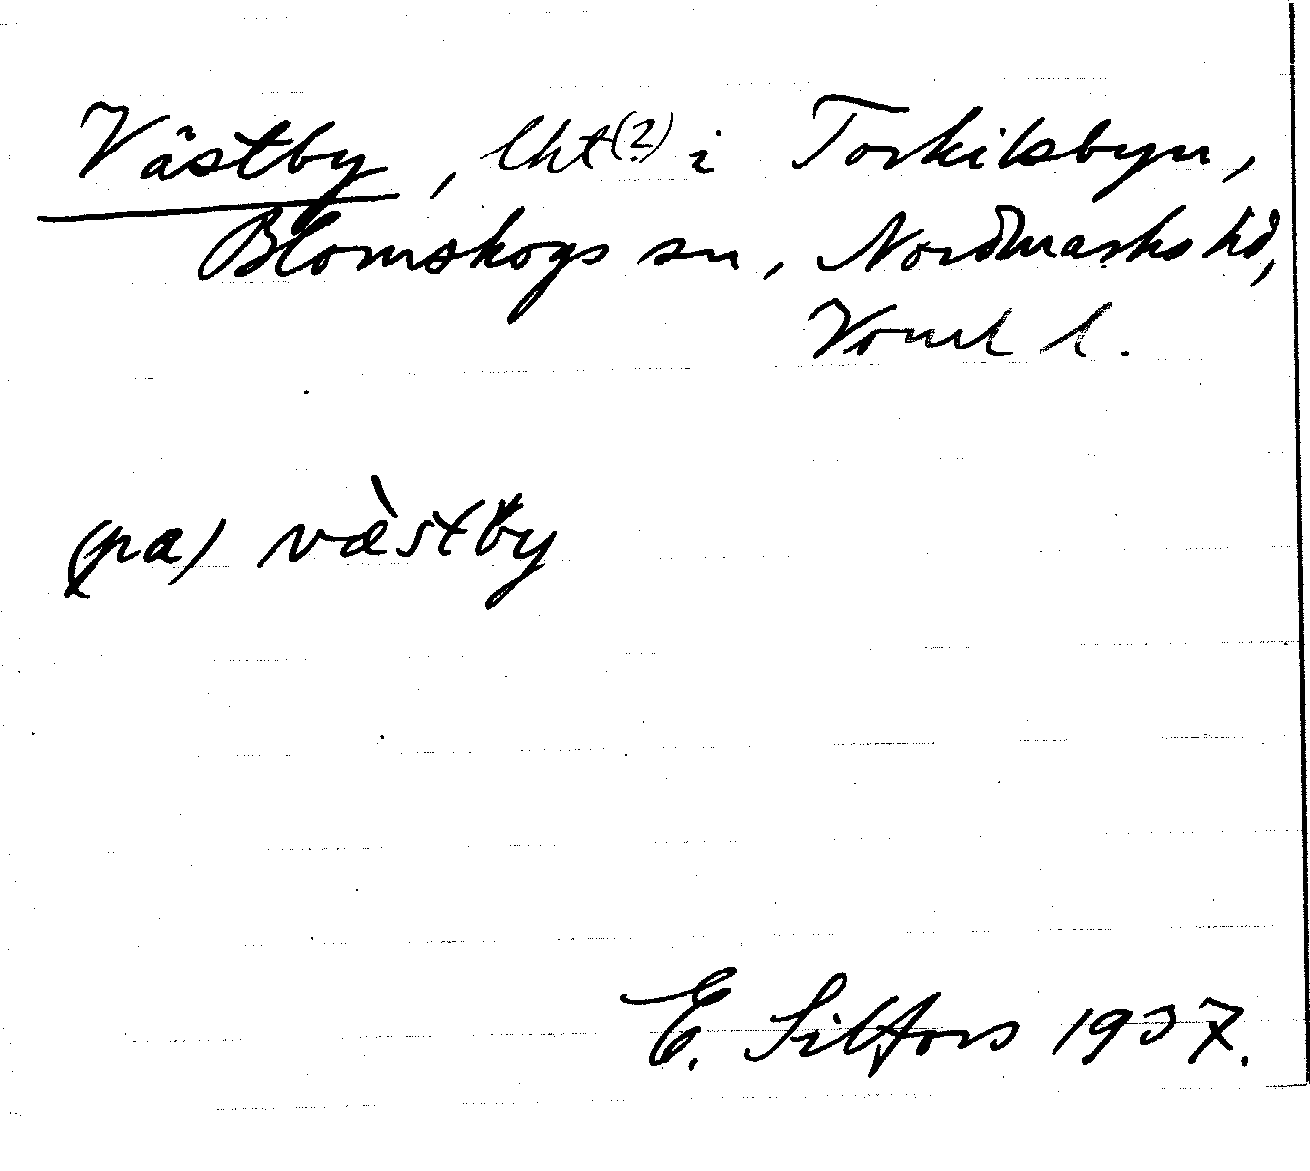 Västby, lht(?) i Torkilsbyn,
Blomskogs sn, Nordmarks hd,
Värml l.
(pa) væ̀stby
E. Silfors 1937.